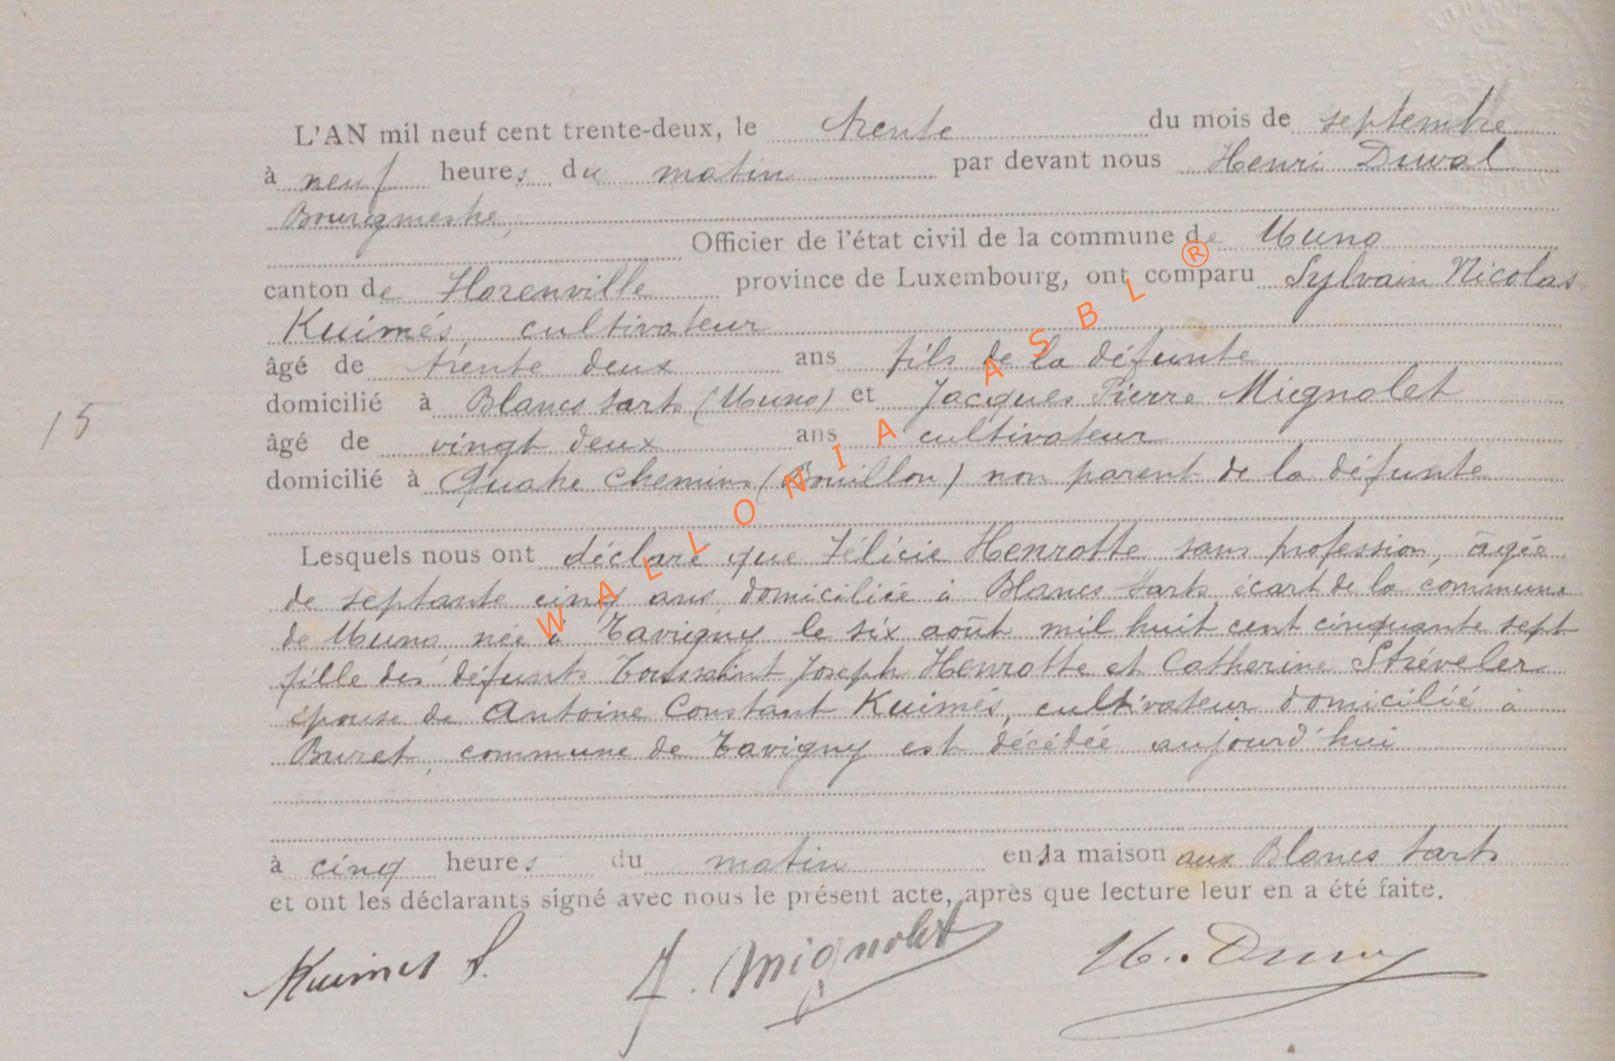 L'AN mil neuf cent trente-deux, le trente du mois de septembre
à neuf heures du matin par devant nous Henri Duval
Bourgmestre,
Officier de l'état civil de la commune de Muno
canton de Florenville province de Luxembourg, ont comparu Sylvain Nicolas
Kuimés, cultivateur
âgé de trente deux ans fils de la défunte
domicilié à Blancs Sarts (Muno) et Jacques Pierre Mignolet
15
âgé de vingt deux ans cultivateur
domicilié à Quatre Chemins (Bouillon) non parent de la défunte
Lesquels nous ont déclaré que Félicie Henrotte sans profession, âgée
de septante cinq ans, domiciliée à Blancs Sarts écart de la commune
de Muno, née à Tavigny le six août mil huit cent cinquante sept
fille des défunts Toussaint Joseph Henrotte et Catherine Stréveler
épouse de Antoine Constant Kuimés, cultivateur domicilié à
Buret, commune de Tavigny est décédée aujourd'hui
à cinq heures du matin en la maison aux Blancs Sarts
et ont les déclarants signé avec nous le présent acte, après que lecture leur en a été faite.
Kuimes S. J. Mignolet H. Duval
WALLONIA ASBL ®